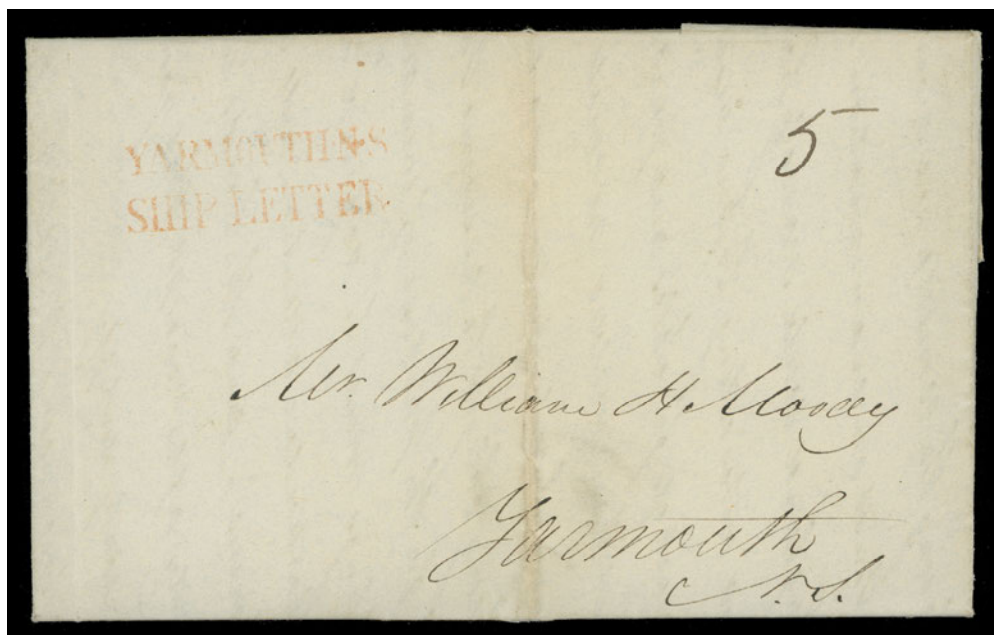 YARMOUTH N·S
SHIP LETTER
5
Mr. William H Moody
Yarmouth
N.S.